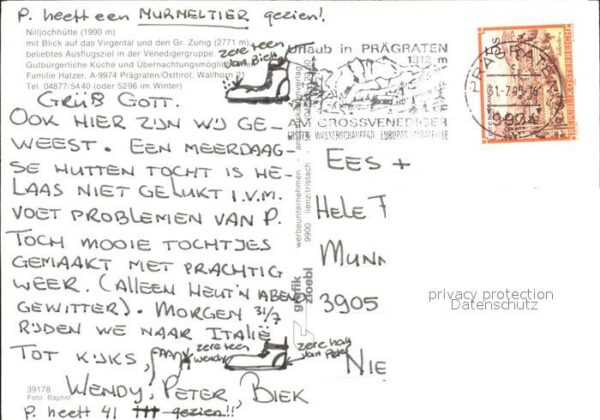 P. heeft een MURMELTIER gezien!
Nilljochhütte (1990 m)
mit Blick auf das Virgental und den Gr. Zunig (2771 m),
beliebtes Ausflugsziel in der Venedigergruppe.
Gutbürgerliche Küche und Übernachtungsmöglichkeit
Familie Hatzer. A-9974 Prägraten/Osttirol, Wallhorn
Tel. 04877/5440 (oder 5296 im Winter)
zere teen
van Biek
GRÜß GOTT.
OOK HIER ZIJN WIJ GE-
WEEST. EEN MEERDAAG-
SE HUTTEN TOCHT IS HE-
LAAS NIET GELUKT I.V.M.
VOET PROBLEMEN VAN P.
TOCH MOOIE TOCHTJES
GEMAAKT MET PRACHTIG
WEER. (ALLEEN HEUT'N ABEND
GEWITTER). MORGEN 31/7
RIJDEN WE NAAR ITALIË
TOT KIJKS,
zere teen
wendy
zere hak
van Peter
WENDY, PETER, BIEK
39178
Foto Baptist
P. heeft 41 gezien!!
werbeunternehmen
9900 lienz/tristach
grafik
zloebl
Urlaub in PRÄGRATEN
1312 m
AM GROSSVENEDIGER
ERSTER WASSERSCHAUPFAD EUROPAS UMBALFÄLLE
PRÄGRATEN
31-7.95-16
9974
REPUBLIK ÖSTERREICH
EES +
HELE F
MUNN
3905
NIE
privacy protection
Datenschutz